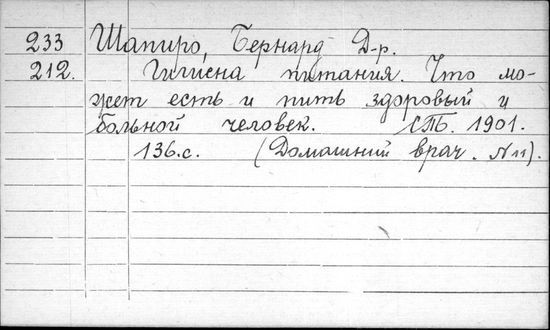 233 Шапиро, Бернард Д-р.
212. Гигиена питания. Что мо-
жет есть и пить здоровый и
больной человек. СПб. 1901.
136.с. (Домашний врач. N 11).